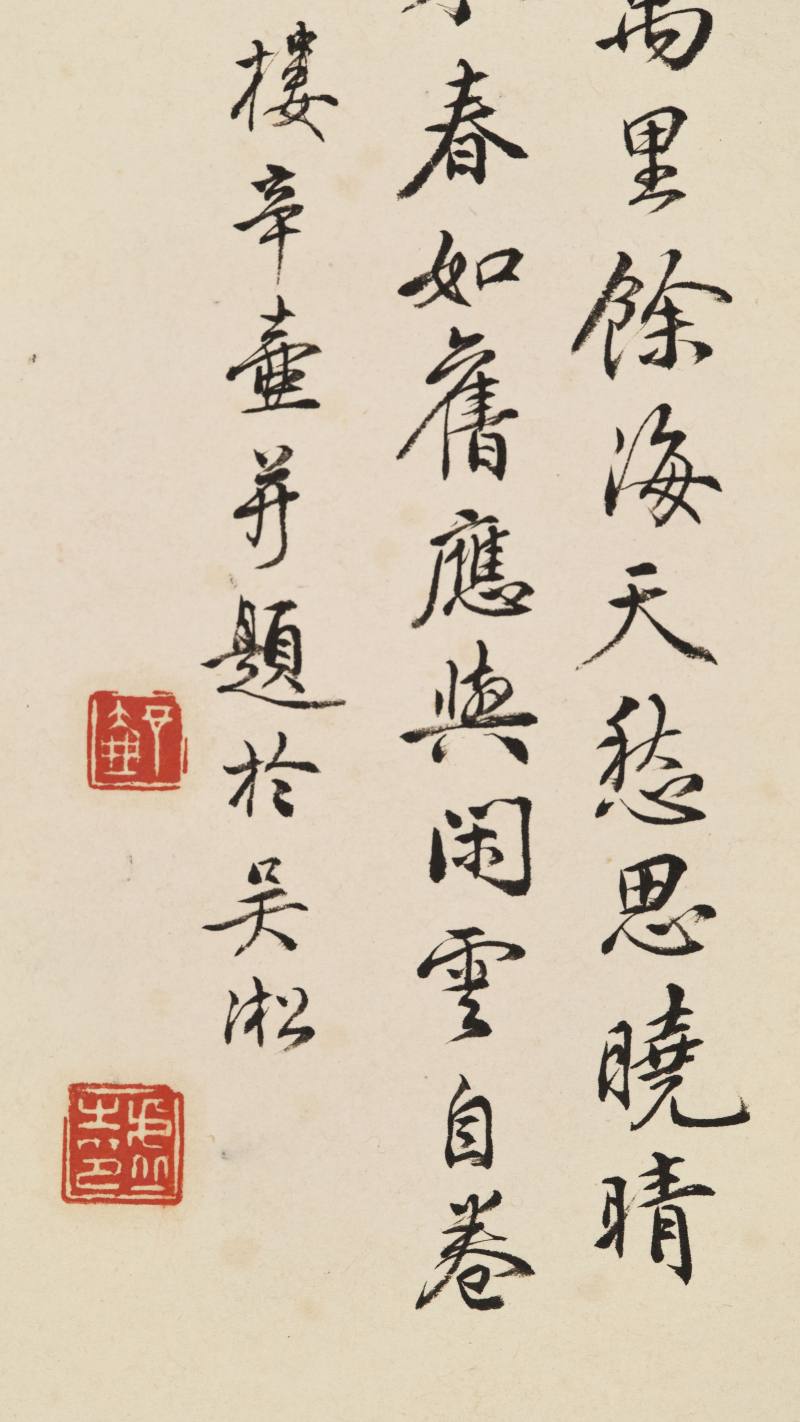 里餘海天愁思曉晴
春如舊應與閑雲自卷
樓辛壺并題於吳淞